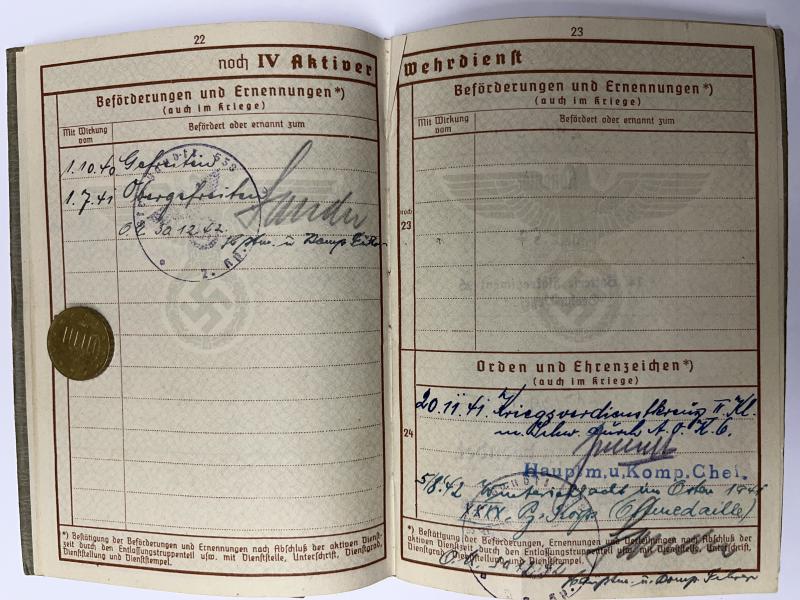 22
noch IV Aktiver
Beförderungen und Ernennungen*)
(auch im Kriege)
Mit Wirkung vom
Befördert oder ernannt zum
1.10.40 Gefreiten
1.7.41 Obergefreiten
O.U. 30.12.42
Hptm. u. Komp. Führer
2. Kp.
*) Bestätigung der Beförderungen und Ernennungen nach Abschluß der aktiven Dienst-
zeit durch den Entlassungstruppenteil usw. mit Dienststelle, Unterschrift, Dienstgrad,
Dienststellung und Dienststempel.
23
Wehrdienst
Beförderungen und Ernennungen*)
(auch im Kriege)
Mit Wirkung vom
Befördert oder ernannt zum
noch
23
Orden und Ehrenzeichen*)
(auch im Kriege)
20.11.41. Kriegsverdienstkreuz II. Kl.
m. Schw. durch A.O.K. 6.
24
Hauptm.u.Komp.Chef.
5/8.42 Winterschlacht im Osten 1941
XXIX. Pz. Korps (Ostmedaille)
*) Bestätigung der Beförderungen, Ernennungen und Verleihungen nach Abschluß der
aktiven Dienstzeit durch den Entlassungstruppenteil usw. mit Dienststelle, Unterschrift,
Dienstgrad, Dienststellung und Dienststempel.
O.U.
Hauptm. u. Komp. Führer